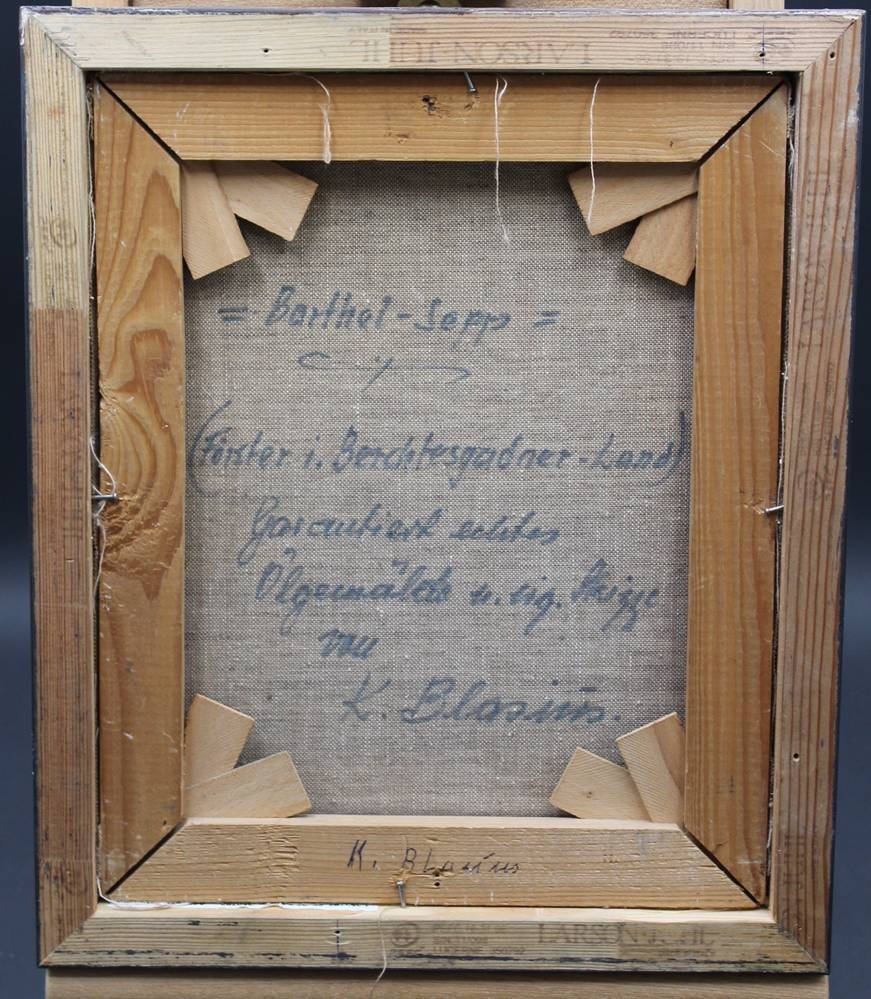 LARSON-JUHL
= Barthel-Sepp =
(Förster i. Berchtesgadner-Land)
Garantiert echtes
Ölgemälde u. eig. Skizze
von
K. Blasius.
K. Blasius
LARSON-JUHL